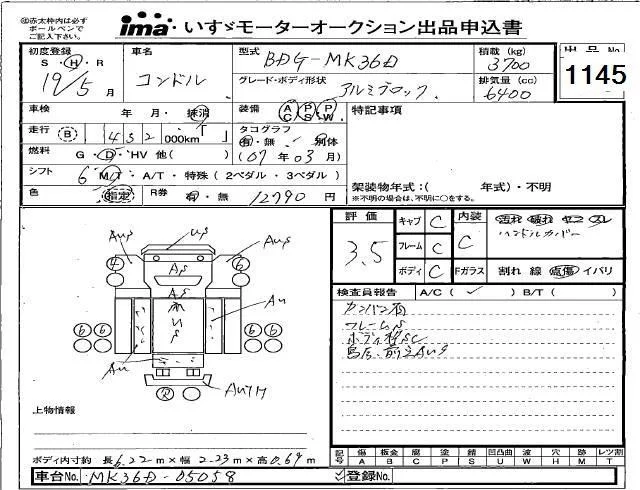 ㊟赤太枠内は必ず
ボールペンで
ご記入下さい。
ima いすゞモーターオークション出品申込書
初度登録 S・H・R 19/5月
車名 コンドル
型式 BDG-MK36D
積載(kg) 3700
出品No. 1145
グレード・ボディ形状 アルミブロック
排気量(cc) 6400
車検 年 月・抹消
装備 AC PS PW
特記事項
走行 B 432 000km
タコグラフ 有・無 別体
燃料 G・D・HV 他( )
(07年03月)
シフト 6 M/T・A/T・特殊(2ペダル・3ペダル)
架装物年式:( 年式)・不明
※不明の場合は、不明に○をする。
色 指定 R券 有・無 12790円
評価 3.5
キャブ C 内装 C 汚れ 破れ ヤニ スレ
ハンドルカバー
フレーム C
ボディ C Fガラス 割れ 線 点傷 イバリ
検査員報告 A/C(✓) B/T( )
カンバン有
フレームS
AuS US AuS
4 AS 6
AS
Au
6 6 6 6
Au
AuTH
R
上物情報
ボディ内寸約 長6.22m×幅2.23m×高0.69m
記号 傷 板金 腐 塗 錆 凹凸曲 波 穴 跡 レツ割
A B C P S U W H M T
車台No. MK36D-05058
登録No.